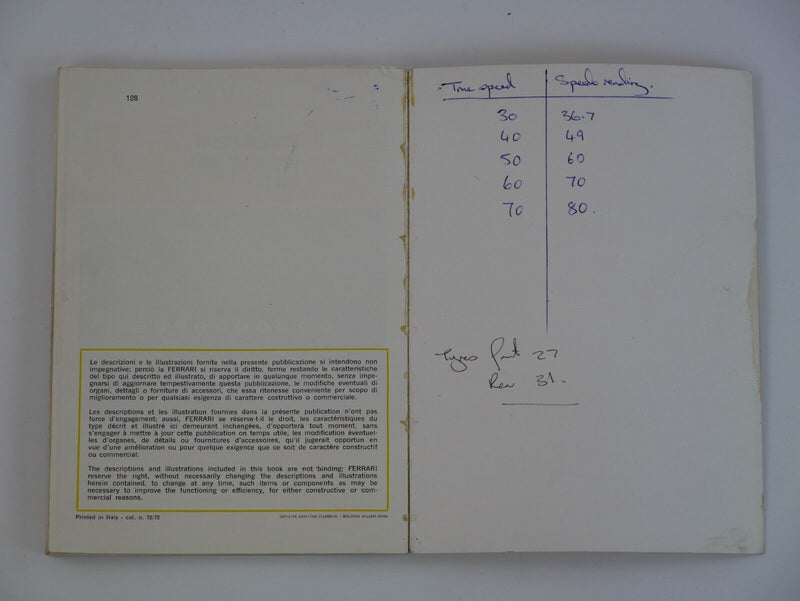 128
Le descrizioni e le illustrazioni fornite nella presente pubblicazione si intendono non
impegnative; perciò la FERRARI si riserva il diritto, ferme restando le caratteristiche
del tipo qui descritto ed illustrato, di apportare in qualunque momento, senza impe-
gnarsi di aggiornare tempestivamente questa pubblicazione, le modifiche eventuali di
organi, dettagli o forniture di accessori, che essa ritenesse conveniente per scopo di
miglioramento o per qualsiasi esigenza di carattere costruttivo o commerciale.
Les descriptions et les illustration fournies dans la présente publication n'ont pas
force d'engagement; aussi, FERRARI se réserve-t-il le droit, les caractéristiques du
type décrit et illustré ici demeurant inchangées, d'apporter à tout moment, sans
s'engager à mettre à jour cette publication en temps utile, les modification éventuel-
les d'organes, de détails ou fournitures d'accessoires, qu'il jugerait opportun en
vue d'une amélioration ou pour quelque exigence que ce soit de caractère constructif
ou commercial.
The descriptions and illustrations included in this book are not binding; FERRARI
reserve the right, without necessarily changing the descriptions and illustrations
herein contained, to change at any time, such items or components as may be
necessary to improve the functioning or efficiency, for either constructive or com-
mercial reasons.
Printed in Italy - cat. n. 72/72
OFFICINE GRAFICHE CALDERINI - BOLOGNA
True speed Speedo reading.
30 36.7
40 49
50 60
60 70
70 80.
Tyres Front 27
Rear 31.